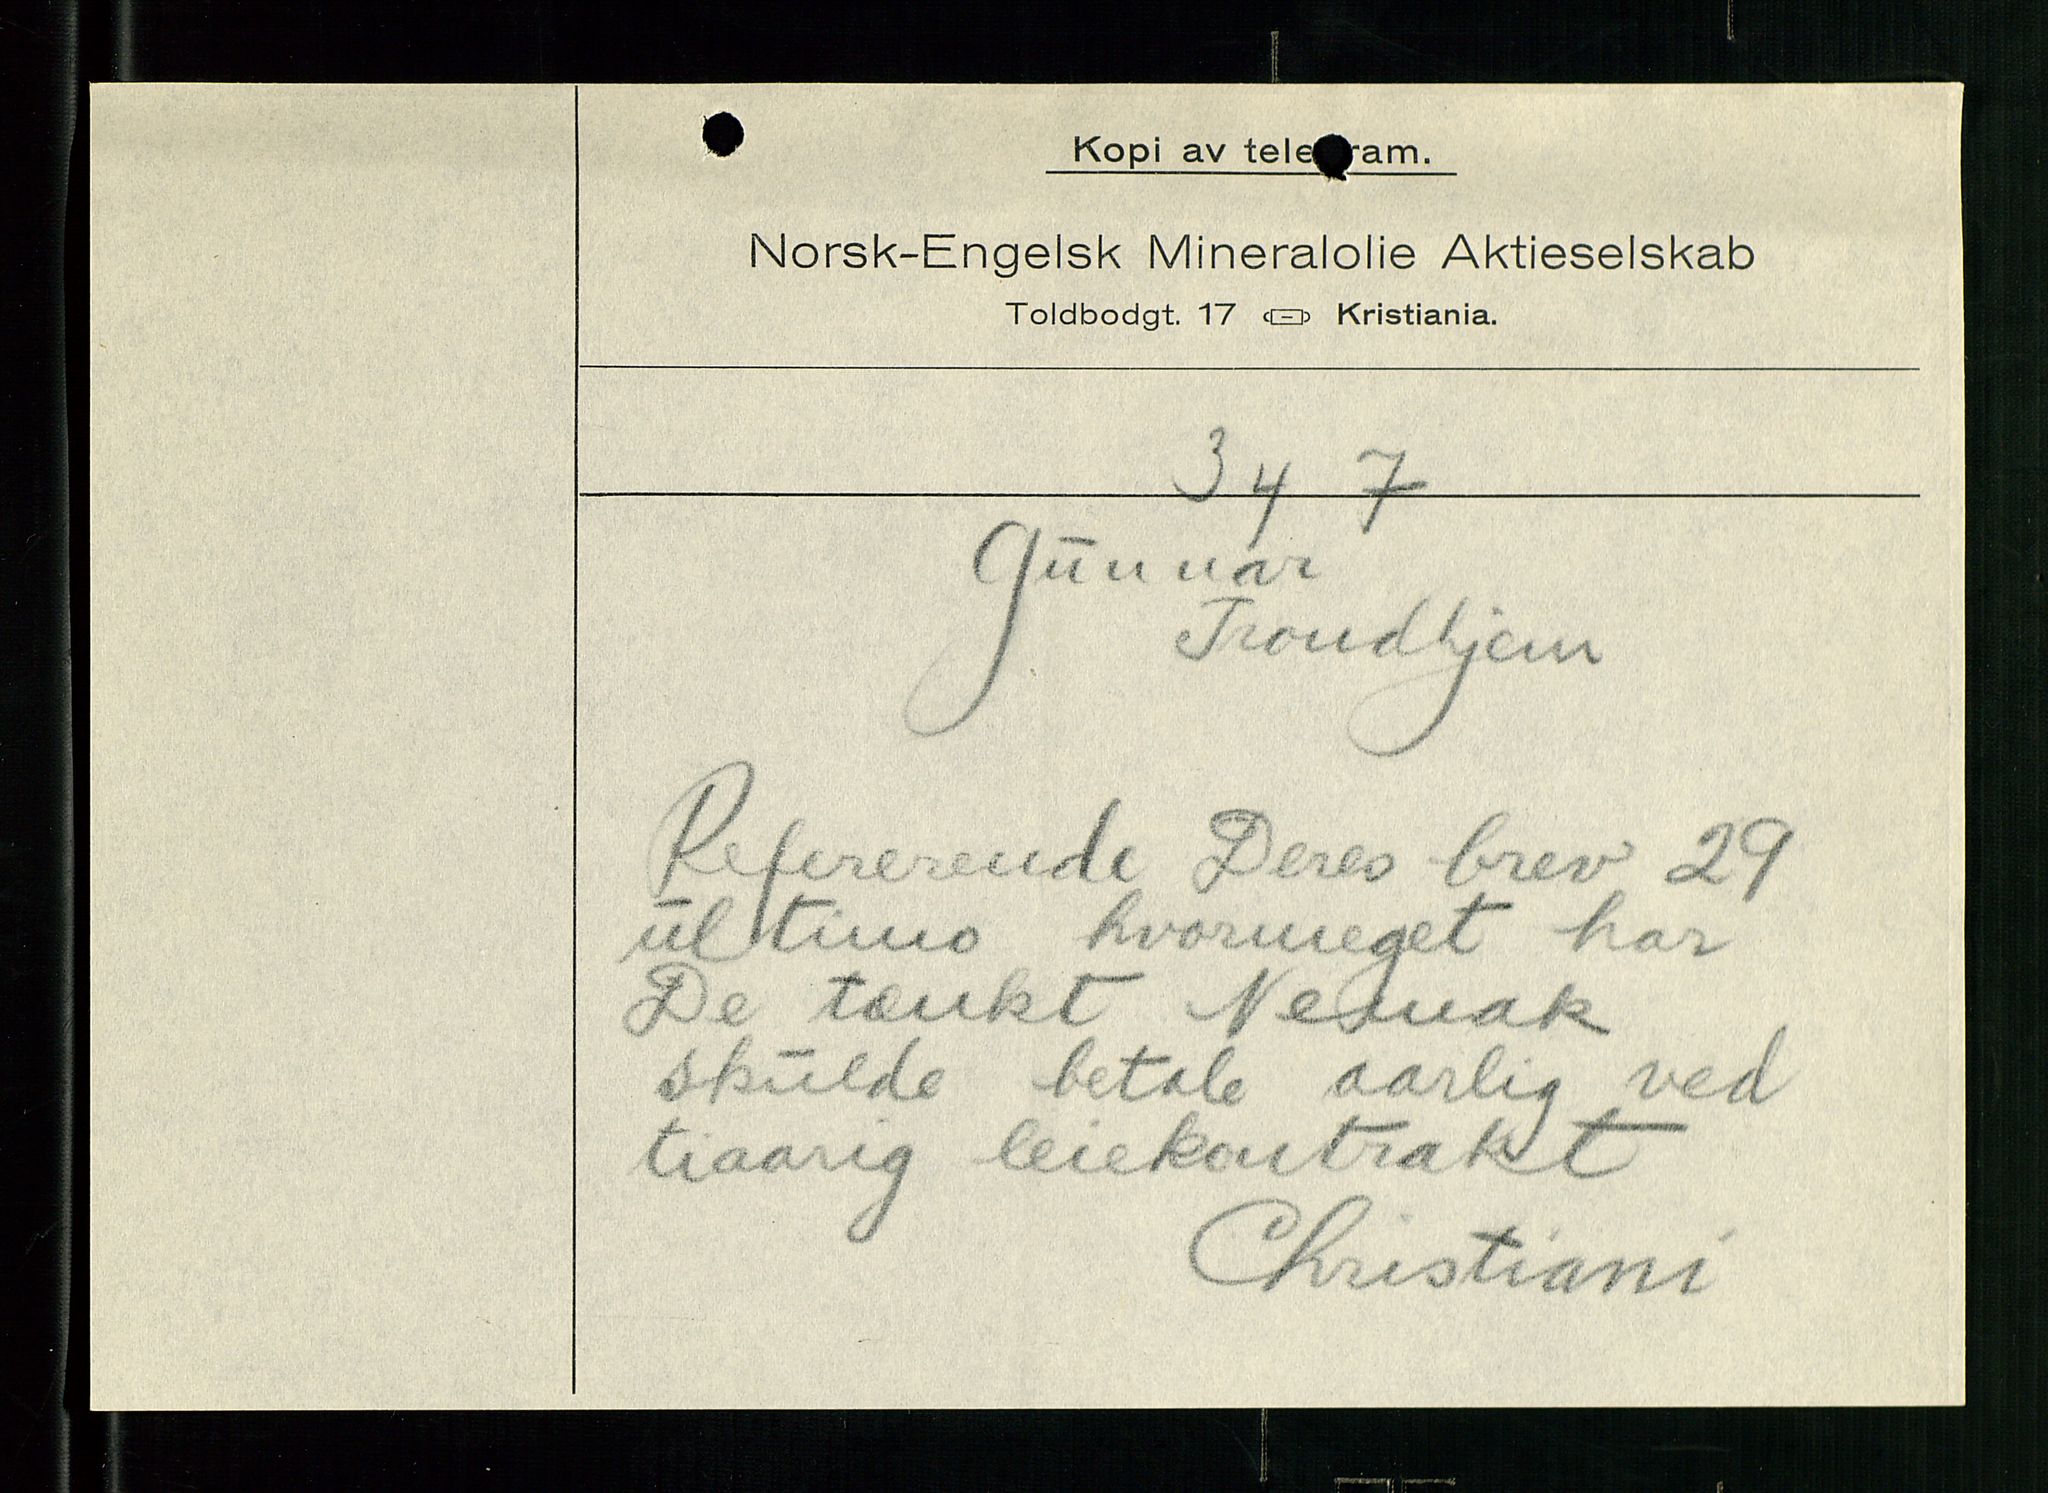 Kopi av telegram.
Norsk-Engelsk Mineralolie Aktieselskab
Toldbodgt. 17 Kristiania.
34 7
Gūnnar
Trondhjem
Refererende Deres brev 29
ūltimo hvormeget har
De tænkt Nemak
skūlde betale aarlig ved
tiaarig leiekontrakt
Christiani